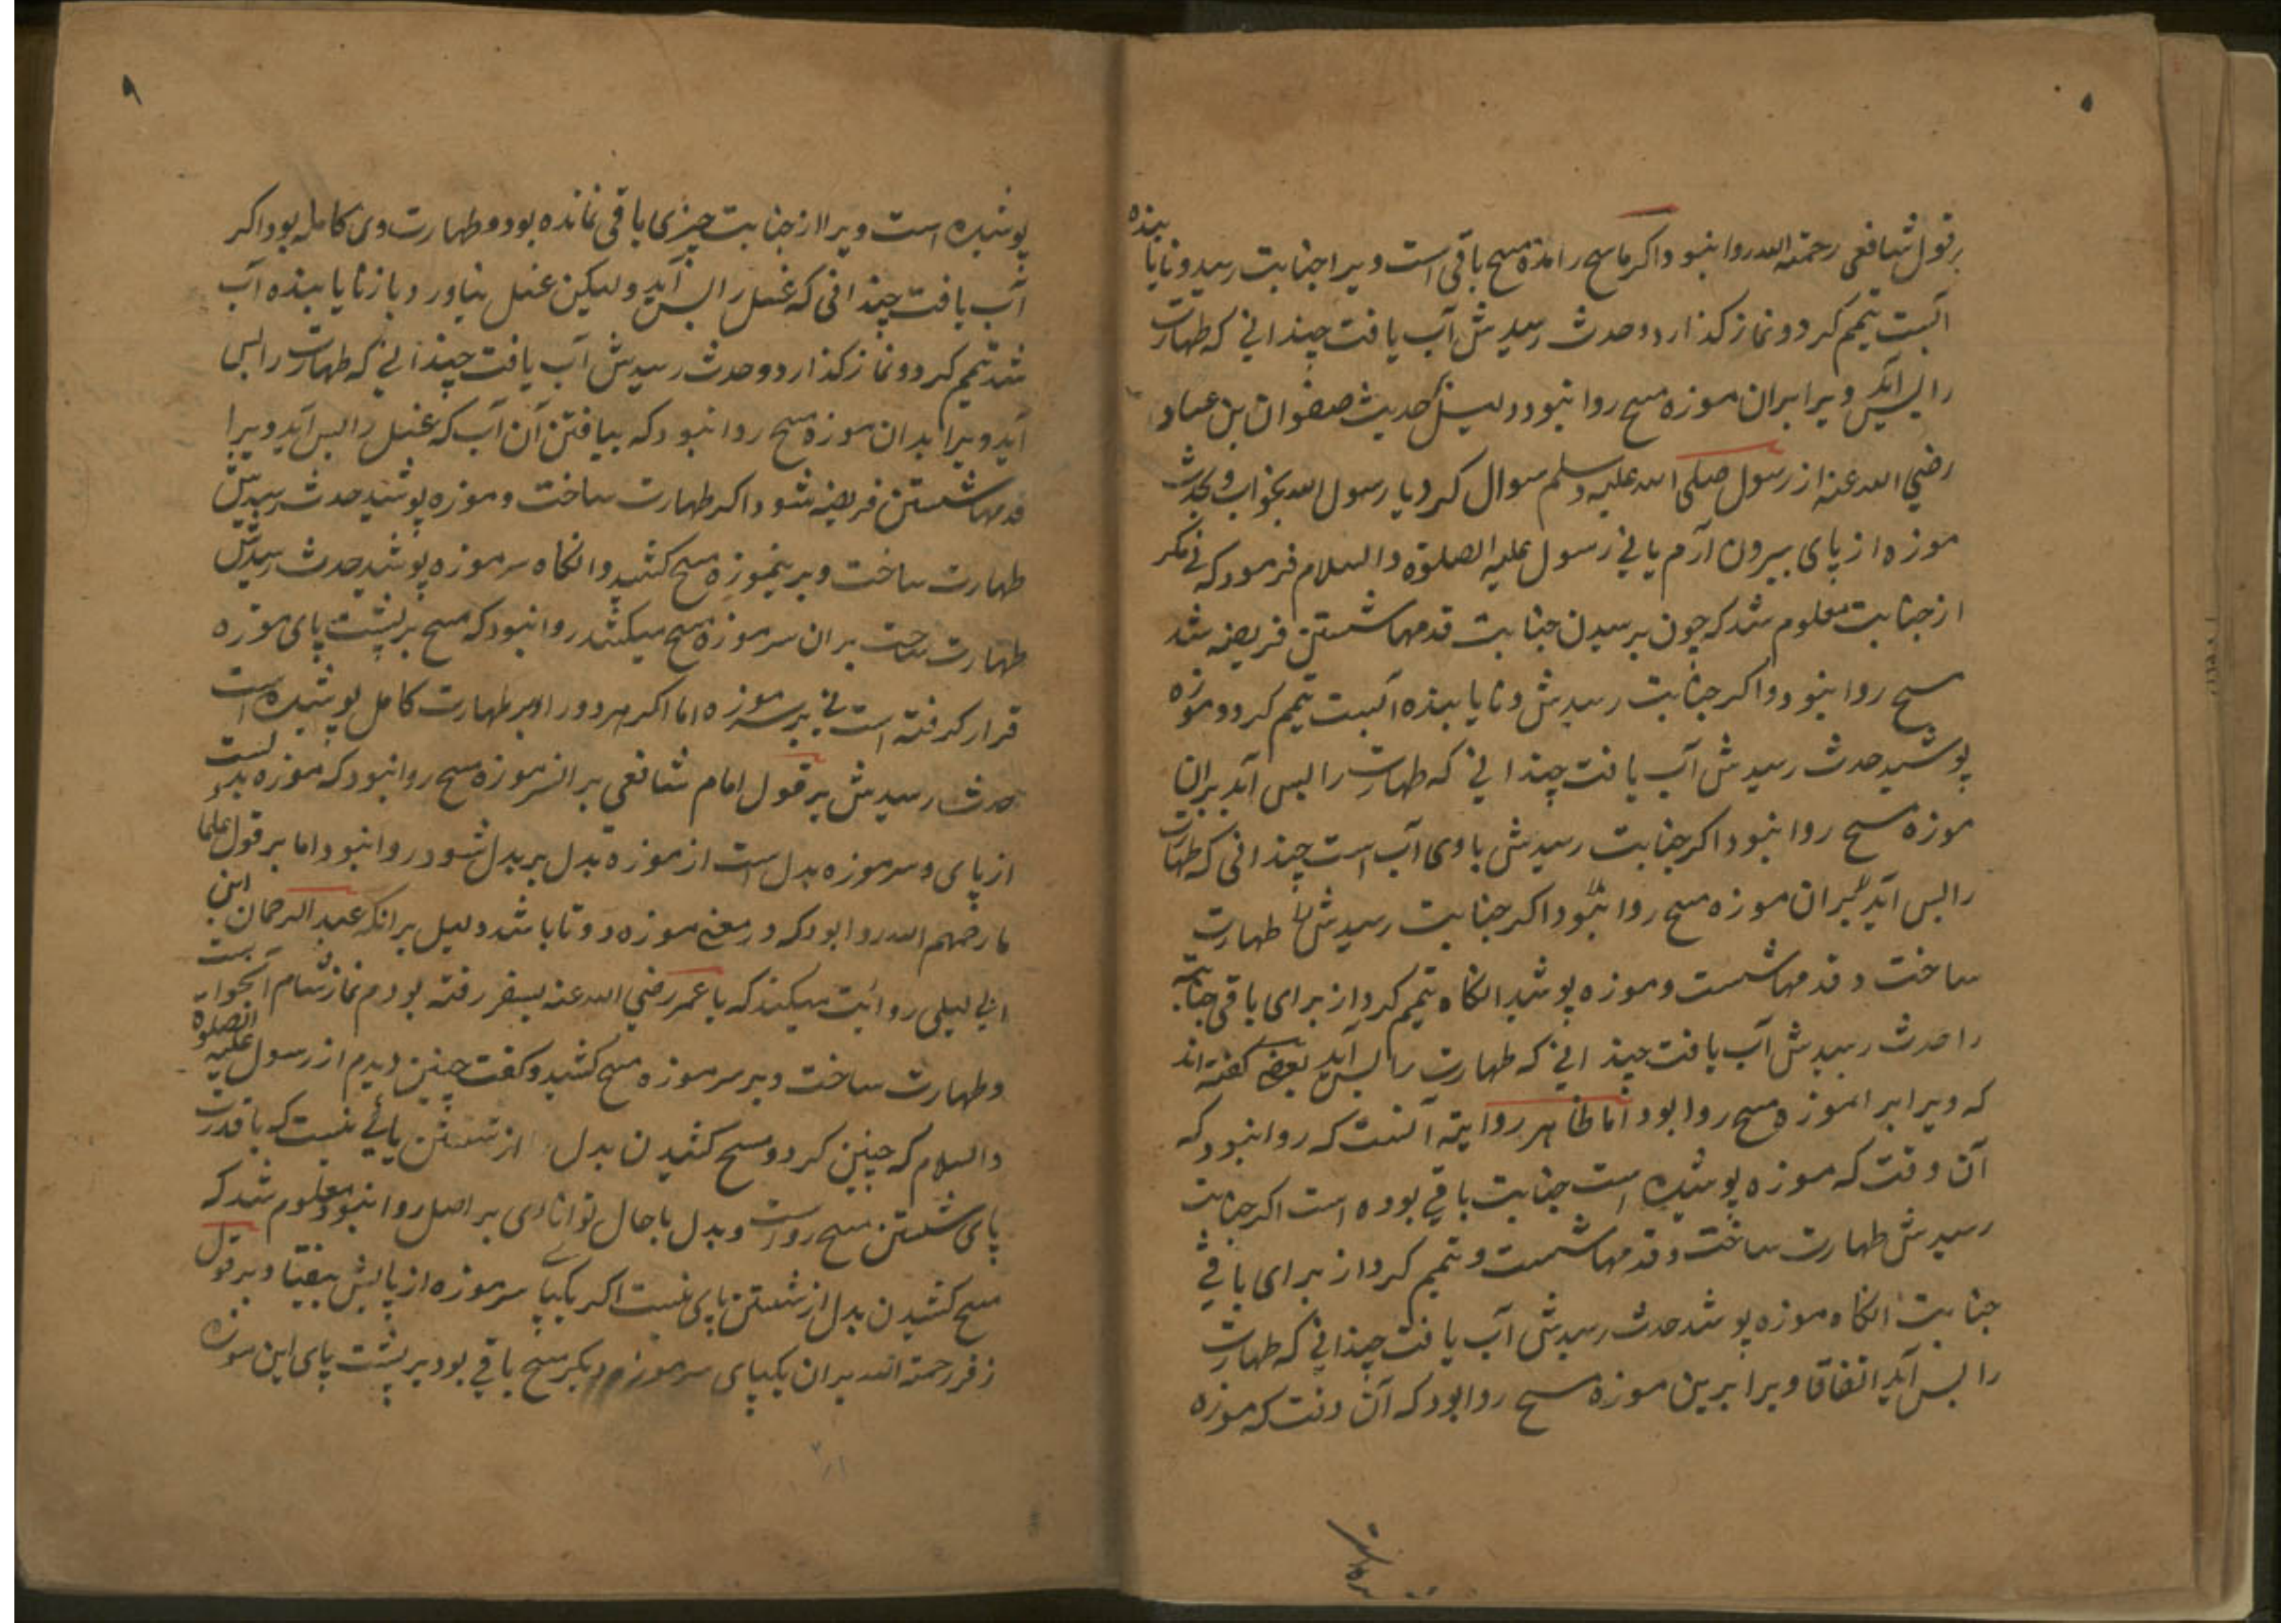 بر قول شافعی رحمة الله روا نبود و اکر ماسح را مدة مسح باقی است ویرا جنابت رسید و نایابنده
آبست تیمم کرد و نماز کذارد و حدث رسیدش آب یافت چندانی که طهارت
را بس آید ویرا بران موزه مسح روا نبود و دلیل حدیث صفوان بن عساد
رضی الله عنه از رسول صلی الله علیه و سلم سوال کرد یا رسول الله بخواب و بحدث
موزه از پای بیرون آرم یا نی رسول علیه الصلوة والسلام فرمود که نی مکر
از جنابت معلوم شد که چون برسیدن جنابت قدمها شستن فریضه شد
مسح روا نبود و اکر جنابت رسیدش و نایابنده آبست تیمم کرد و موزه
پوشید حدث رسیدش آب یافت چندانی که طهارت را بس آید بران
موزه مسح روا نبود اکر جنابت رسیدش با وی آب است چندانی که طهارت
را بس آید بران موزه مسح روا نبود و اکر جنابت رسیدش طهارت
ساخت و قدمها شست و موزه پوشید انکاه تیمم کرد از برای باقی جنابت
را حدث رسیدش آب یافت چندانی که طهارت را بس آید بعضی کفته اند
که ویرا بر آنموزه مسح روا بود اما ظاهر روایت آنست که روا نبود که
آن وقت که موزه پوشیده است جنابت باقی بوده است اکر جنابت
رسیدش طهارت ساخت و قدمها شست و تیمم کرد از برای باقی
جنابت انکاه موزه پوشد حدث رسیدش آب یافت چندانی که طهارت
را بس آید اتفاقا ویرا برین موزه مسح روا بود که آن وقت که موزه
۹
پوشیده است ویرا از جنابت چیزی باقی نمانده بود و طهارت وی کامله بود اکر
آب یافت چندانی که غسل را بس آید ولیکن غسل نیاورد و باز نایابنده آب
شد تیمم کرد و نماز کذارد و حدث رسیدش آب یافت چندانی که طهارت را بس
آید ویرا بدان موزه مسح روا نبود که بیافتن آن آب که غسل را بس آید ویرا
قدمها شستن فریضه شود اکر طهارت ساخت و موزه پوشید حدث رسیدش
طهارت ساخت و برینموزه مسح کشید وانکاه سرموزه پوشید حدث رسیدش
طهارت ساخت بران سرموزه مسح میکشد روا نبود که مسح بر پشت پای موزه
قرار کرفته است نی بر سرموزه اما اکر هر دو را بر طهارت کامل پوشیده است
حدث رسیدش بر قول امام شافعی بر انسرموزه مسح روا نبود که موزه بدلست
از پای و سرموزه بدل است از موزه بدل بر بدل شود روا نبود اما بر قول علما
ما رحمهم الله روا بود که در معنی موزه دوتا باشد دلیل برانکه عبد الرحمان ابن
ابی لیلی روایت میکند که با عمر رضی الله عنه بسفر رفته بودم نماز شام
و طهارت ساخت و بر سرموزه مسح کشید و کفت چنین دیدم از رسول علیه الصلوة
والسلام که چنین کرد و مسح کشیدن بدل از شستن پائی نیست که با قدرت
پای شستن مسح رواست و بدل باجال توانائی بر اصل روا نبود معلوم شد که
مسح کشیدن بدل از شستن پای نیست اکر یکپا سرموزه از پایش بیفتاد بر قول
زفر رحمة الله بران یکپای سرموزه دیکر مسح باقی بود بر پشت پای این موزه